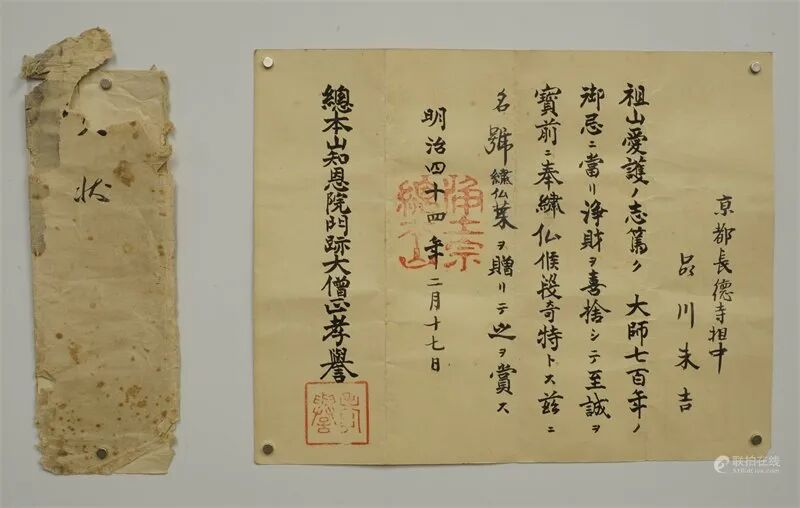 京都長德寺担中
品川末吉
祖山愛護ノ志篤ク 大師七百年ノ
御忌ニ當リ浄財ヲ喜捨シテ至誠ヲ
寶前ニ奉繍仏候段奇特トス茲ニ
名號繍仏菓ヲ贈リテ之ヲ賞ス
明治四十四年二月十七日
總本山知恩院門跡大僧正孝譽
浄土宗
總本山
状
联拍在线